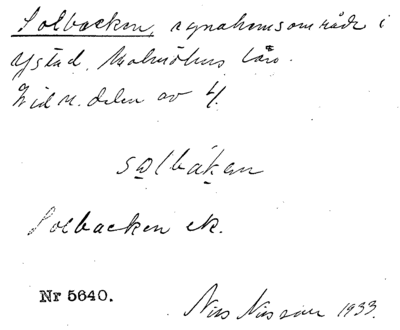 Solbacken, egnahemsområde i
Ystad, Malmöhus län.
Vid n. delen av 4.
solbákan
Solbacken ek.
Nr 5640.
Nils Nilsson 1933.